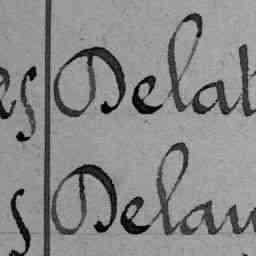 es Delat
s Delau